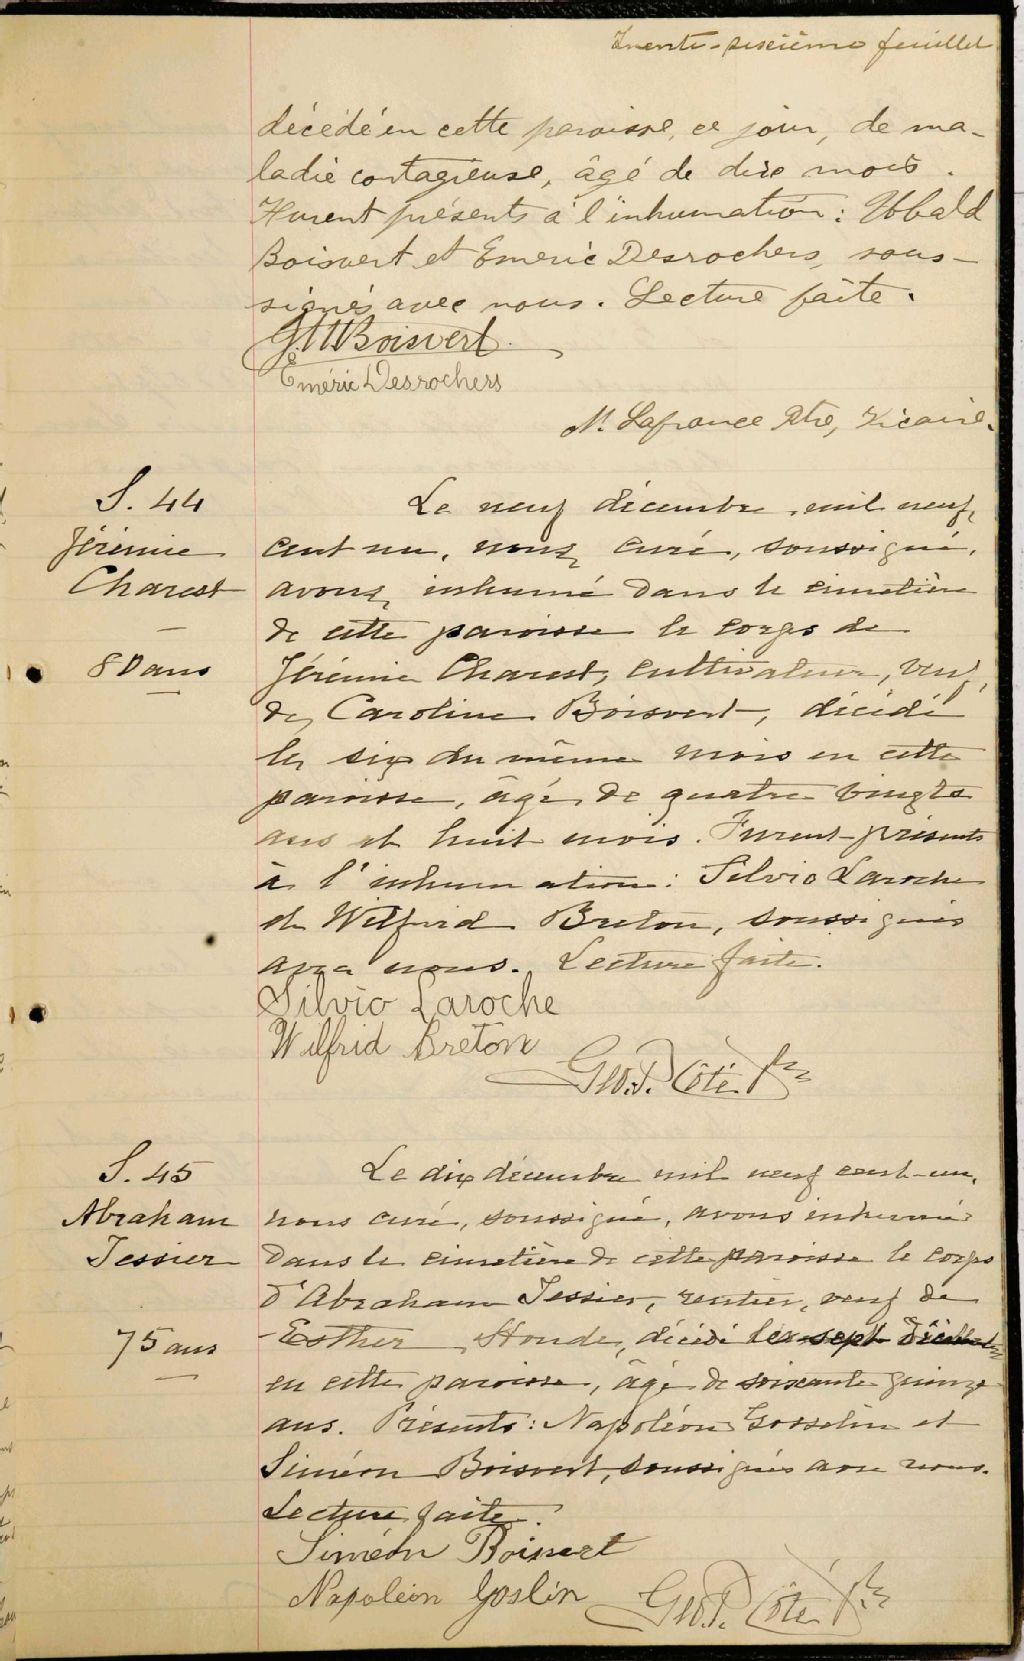 Trente-sixième feuillet
décédé en cette paroisse, ce jour, de ma-
ladie contagieuse, âgé de dix mois.
Furent présents à l'inhumation: Ubald
Boisvert et Emeric Desrochers, sous-
signés avec nous. Lecture faite.
Boisvert
Eméric Desrochers
N. Lafrance Ptre, Vicaire.
S. 44
Jérémie
Charest
80 ans
Le neuf décembre, mil neuf
cent un, nous, curé, soussigné,
avons, inhumé dans le cimetière
de cette paroisse le corps de
Jérémie Charest, cultivateur, veuf,
de, Caroline Boisvert, décédé
le six du même mois en cette
paroisse, âgé, de quatre vingts
ans et huit mois. Furent présents
à l'inhumation: Silvio Laroche
et Wilfrid Breton, soussignés
avec nous. Lecture faite.
Silvio Laroche
Wilfrid Breton
Geo. P. Côté Ptre
S. 45
Abraham
Tessier
75 ans
Le dix décembre mil neuf cent-un,
nous curé, soussigné, avons inhumé
dans le cimetière de cette paroisse le corps
d'Abraham Tessier, rentier, veuf de
Esther Houde, décédé le sept décembre
en cette paroisse, âgé de soixante quinze
ans. Présents: Napoléon Gosselin et
Siméon Boisvert, soussignés avec nous.
Lecture faite.
Siméon Boisvert
Napoléon Goslin
Geo. P. Côté Ptre